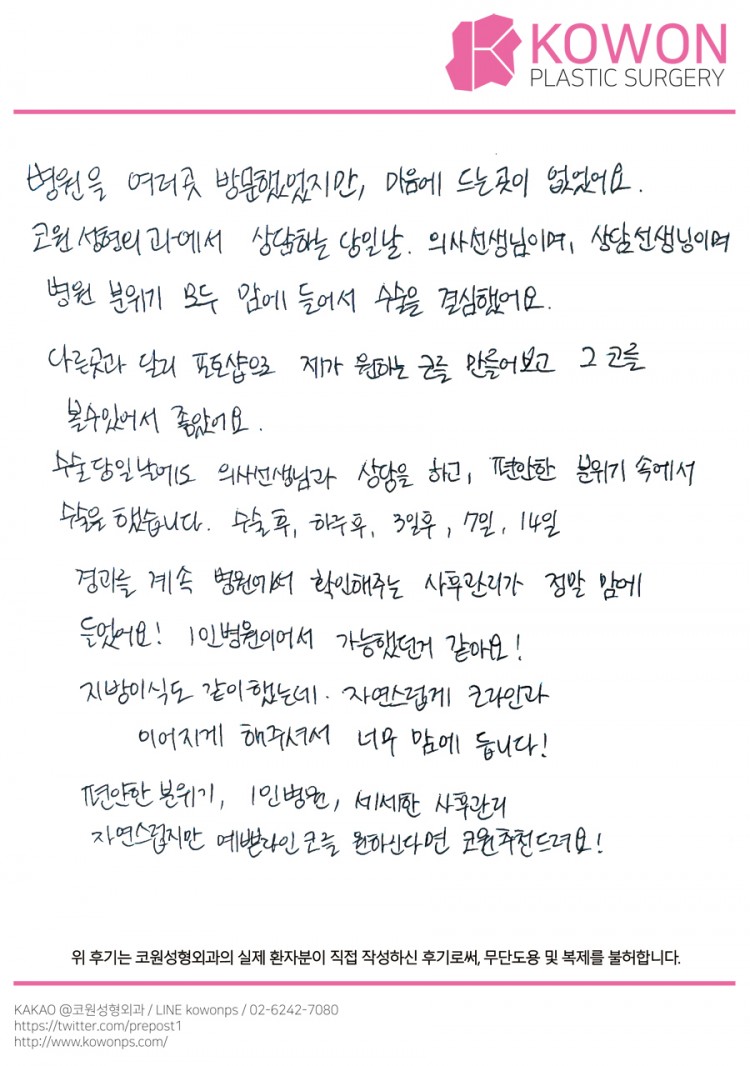 KOWON
PLASTIC SURGERY
병원을 여러곳 방문했었지만, 마음에 드는곳이 없었어요.
코원 성형외과에서 상담하는 당일날. 의사선생님이며, 상담선생님이며
병원 분위기 모두 맘에 들어서 수술을 결심했어요.
다른곳과 달리 포토샵으로 제가 원하는 코를 만들어보고 그 코를
볼수있어서 좋았어요.
수술당일날에도 의사선생님과 상담을 하고, 편안한 분위기 속에서
수술을 했습니다. 수술후, 하루후, 3일후, 7일, 14일
경과를 계속 병원에서 확인해주는 사후관리가 정말 맘에
들었어요! 1인병원이어서 가능했던거 같아요!
지방이식도 같이했는데. 자연스럽게 코라인과
이어지게 해주셔서 너무 맘에 듭니다!
편안한 분위기, 1인병원, 세세한 사후관리
자연스럽지만 예쁜라인코를 원하신다면 코원추천드려요!
위 후기는 코원성형외과의 실제 환자분이 직접 작성하신 후기로써, 무단도용 및 복제를 불허합니다.
KAKAO @코원성형외과 / LINE kowonps / 02-6242-7080
https://twitter.com/prepost1
http://www.kowonps.com/